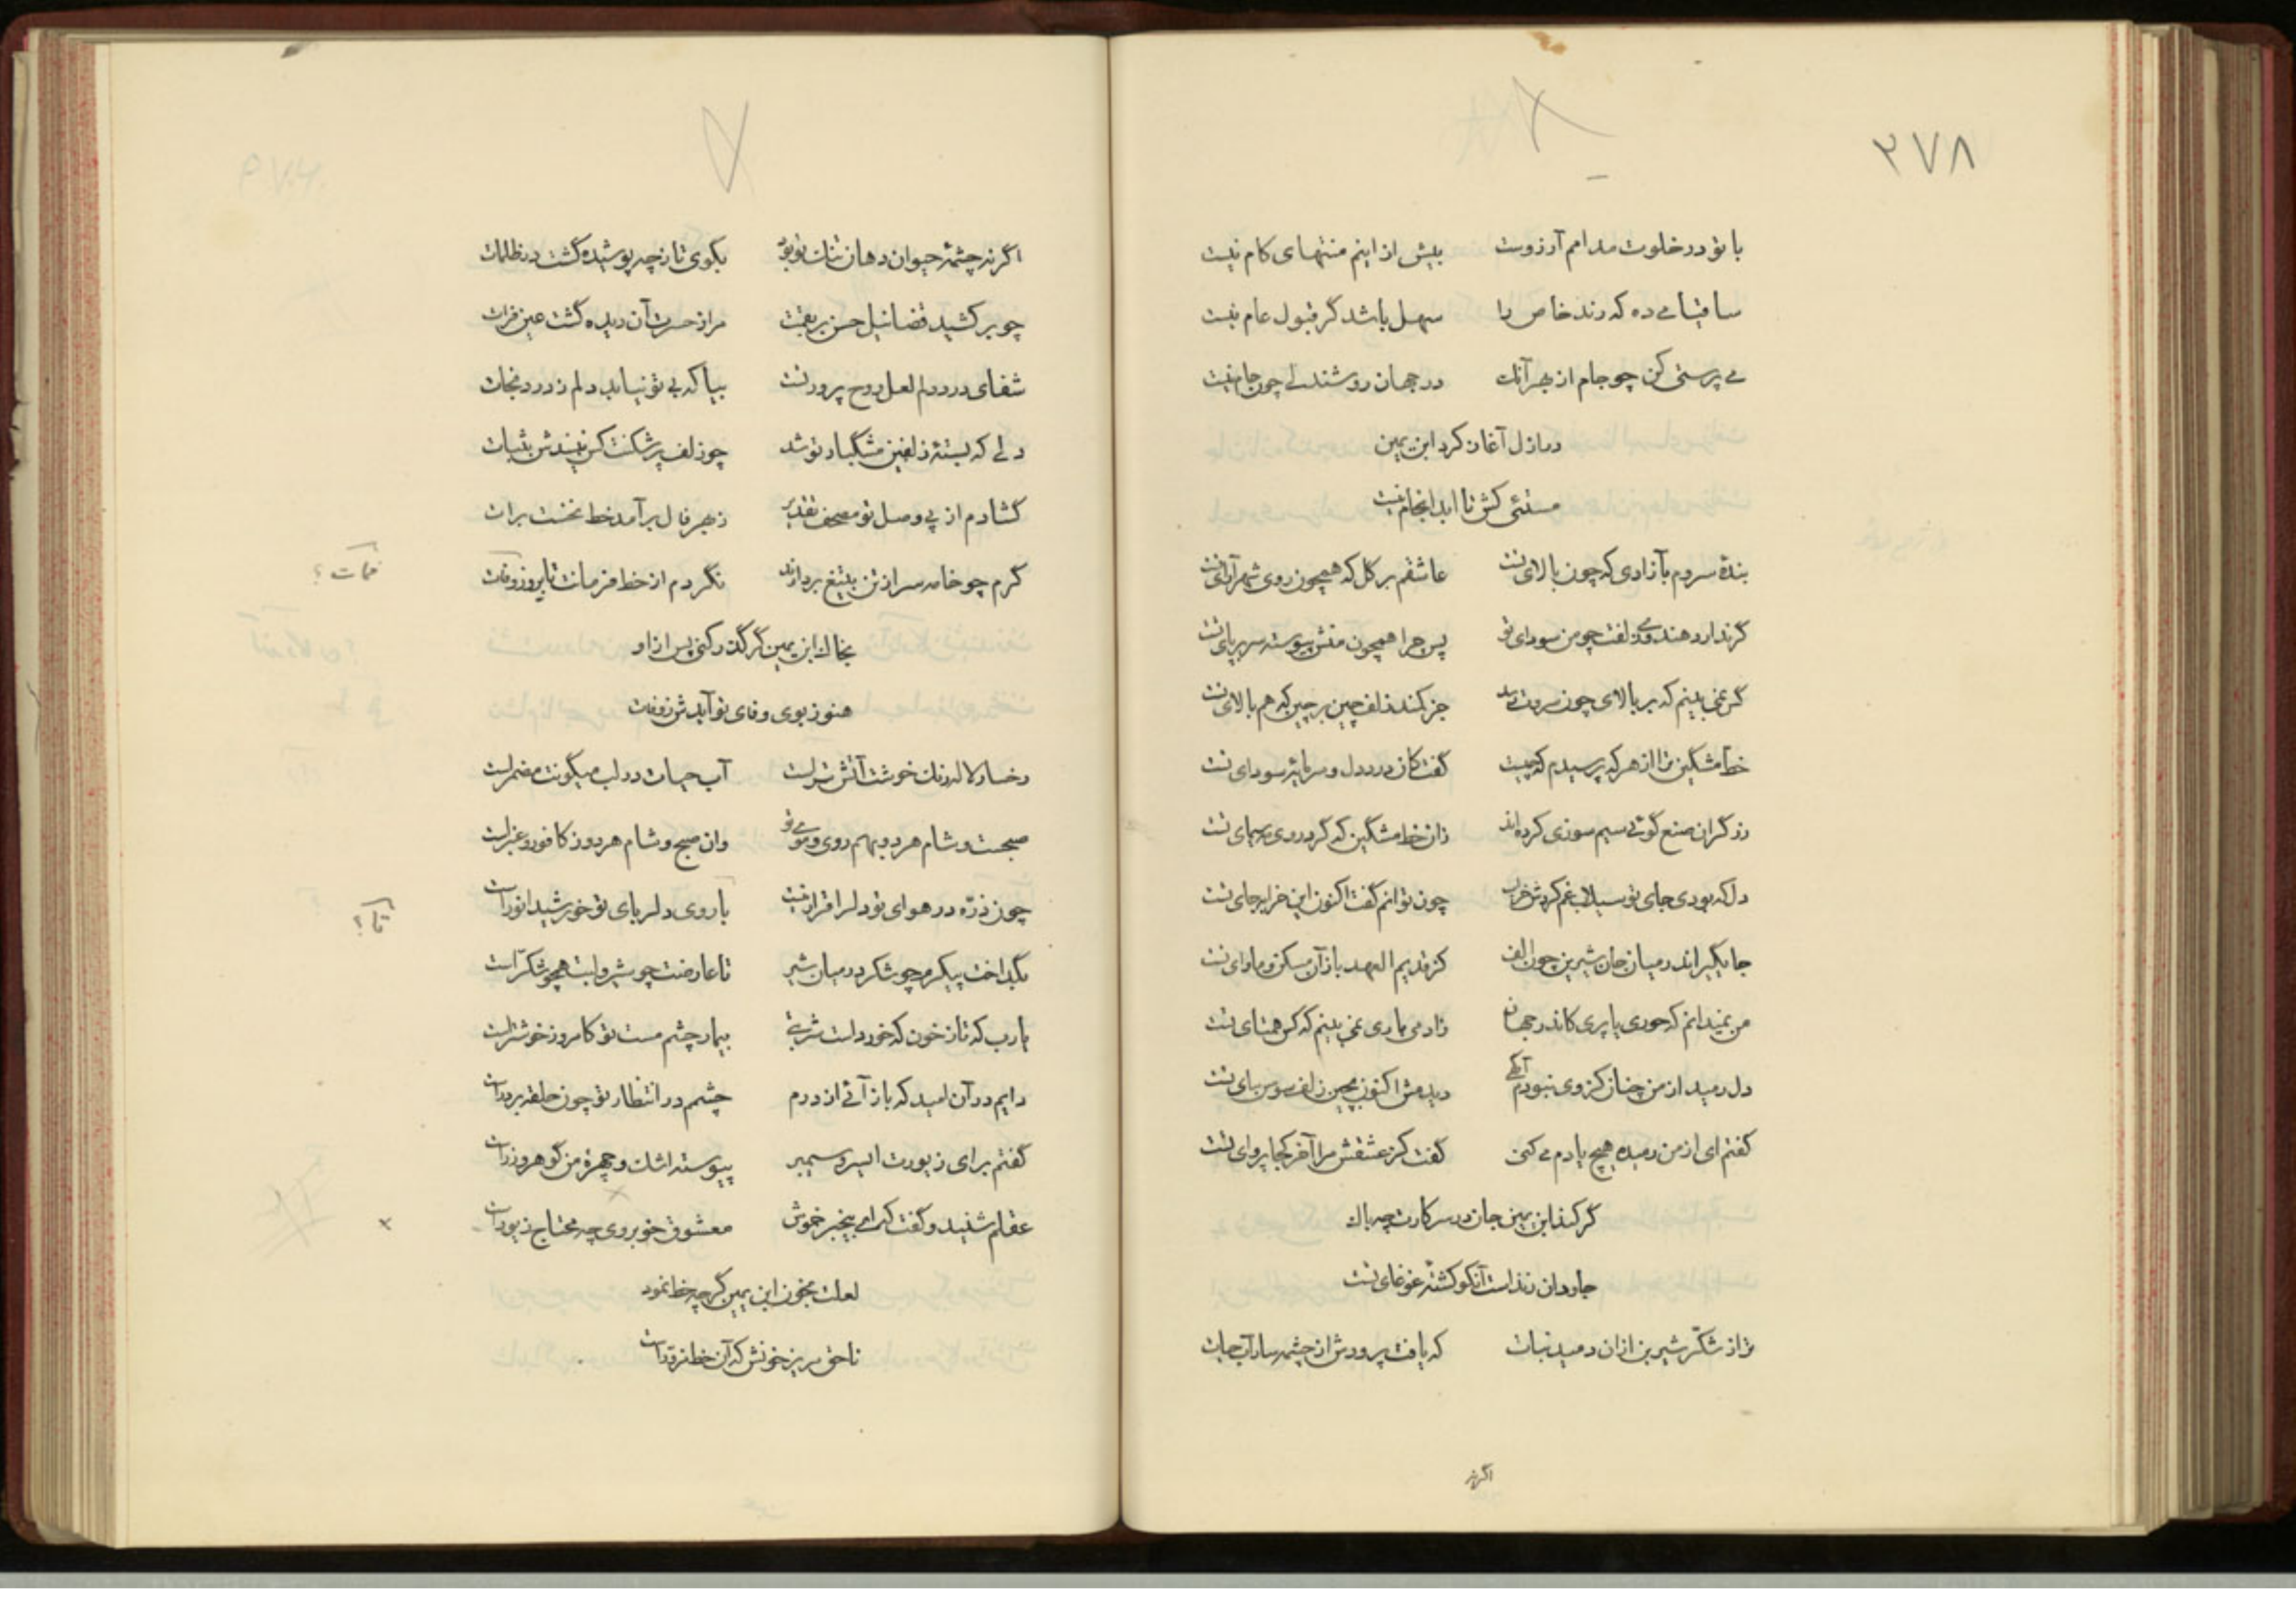 ۳۷۸
با تو در خلوت مدامم آرزوست بیش از اینم منتهای کام نیست
ساقیا می ده که رند خاص را سهل باشد گر قبول عام نیست
می پرستی کن چو جام از بهر آنک در جهان روشندلی چون جام نیست
در ازل آغاز کرد ابن یمین
مستئی کش تا ابد انجام نیست
بندهٔ سروم بآزادی که چون بالای تست عاشقم بر گل که همچون روی شهرآرای تست
گر ندارد هندوی زلفت چو من سودای تو پس چرا همچون منش پیوسته سر بر پای تست
کس نمی بینم که بر بالای چون سروت رسد جز کمند زلف چین بر چین که هم بالای تست
خط مشکین ترا از هر که پرسیدم که چیست گفت کان درد دل و سرمایهٔ سودای تست
زرگران صنع گوئی سیم سوزی کرده‌اند زان خط مشگین که گرد روی مه سیمای تست
دل که بودی جای تو سیلاب غم کردش خراب چون توانم گفت اکنون این خرابه جای تست
جایگیر اندر میان جان شیرین چون الف کز قدیم العهد باز آن مسکن و ماوای تست
من نمیدانم که حوری یا پری کاندر جهان زادمی باری نمی بینم که کس همتای تست
دل رمید از من چنان کز وی نبودم آگهی دیدمش اکنون بچین زلف سوسن سای تست
گفتم ای از من رمیده هیچ یادم می کنی گفت کز عشقش مرا آخر کجا پروای تست
گر کند ابن یمین جان در سر کارت چه باک
جاودان زنداست آنکو کشتهٔ غوغای تست
ترا ز شکّر شیرین از آن دمید نبات که یافت پرورش از چشمه سار آب حیات
اگر نه
اگر نه چشمهٔ حیوان دهان تنک تو بود بگوی تا ز چه پوشیده گشت در ظلمات
چو بر کشید قضا نیل حسن بر مرا از حسرت آن دیده گشت عین فرات
شفای درد دلم لعل روح پرور تست بیا که بی تو نیابد دلم ز درد نجات
دلی که بستهٔ زلفین مشگبار تو شد چو زلف پر شکنت کس نبیندش بثبات
گشادم از پی وصل تو مصحف تقدیر ز بهر فال برآمد خط نخست برات
گرم چو خامه سر از تن بتیغ بردارند نگردم از خط فرمانت تا بروز وفات
ممات ؟
بخاک ابن یمین گر گذر کنی پس ازو
هنوز بوی وفای تو آیدش ز رفات
رخسار لاله رنک خوشت آتش تراست آب حیات در لب میگونت مضمراست
صبحت و شام هر دو بهم روی و موی تو وان صبح و شام هر دو ز کافور و عنبراست
چون ذرّه در هوای تو دلرا قرار نیست با روی دلربای تو خورشید انوراست
تا ؟
بگداخت پیکرم چو شکر در میان شیر تا عارضت چو شیر و لبت همچو شکّراست
یارب که تا ز خون که خورد است شربتی بیمار چشم مست تو کامروز خوشتراست
دایم در آن امید که باز آئی از درم چشمم در انتظار تو چون حلقه بر در است
گفتم برای زیورت ای سرو سیمبر پیوسته اشک و چهرهٔ من گوهر و زر است
عقلم شنید و گفت که ای بیخبر خموش معشوق خوبروی چه محتاج زیور است
لعلت بخون ابن یمین گر چه خط نمود
ناحق مریز خونش که آن خط مزور است